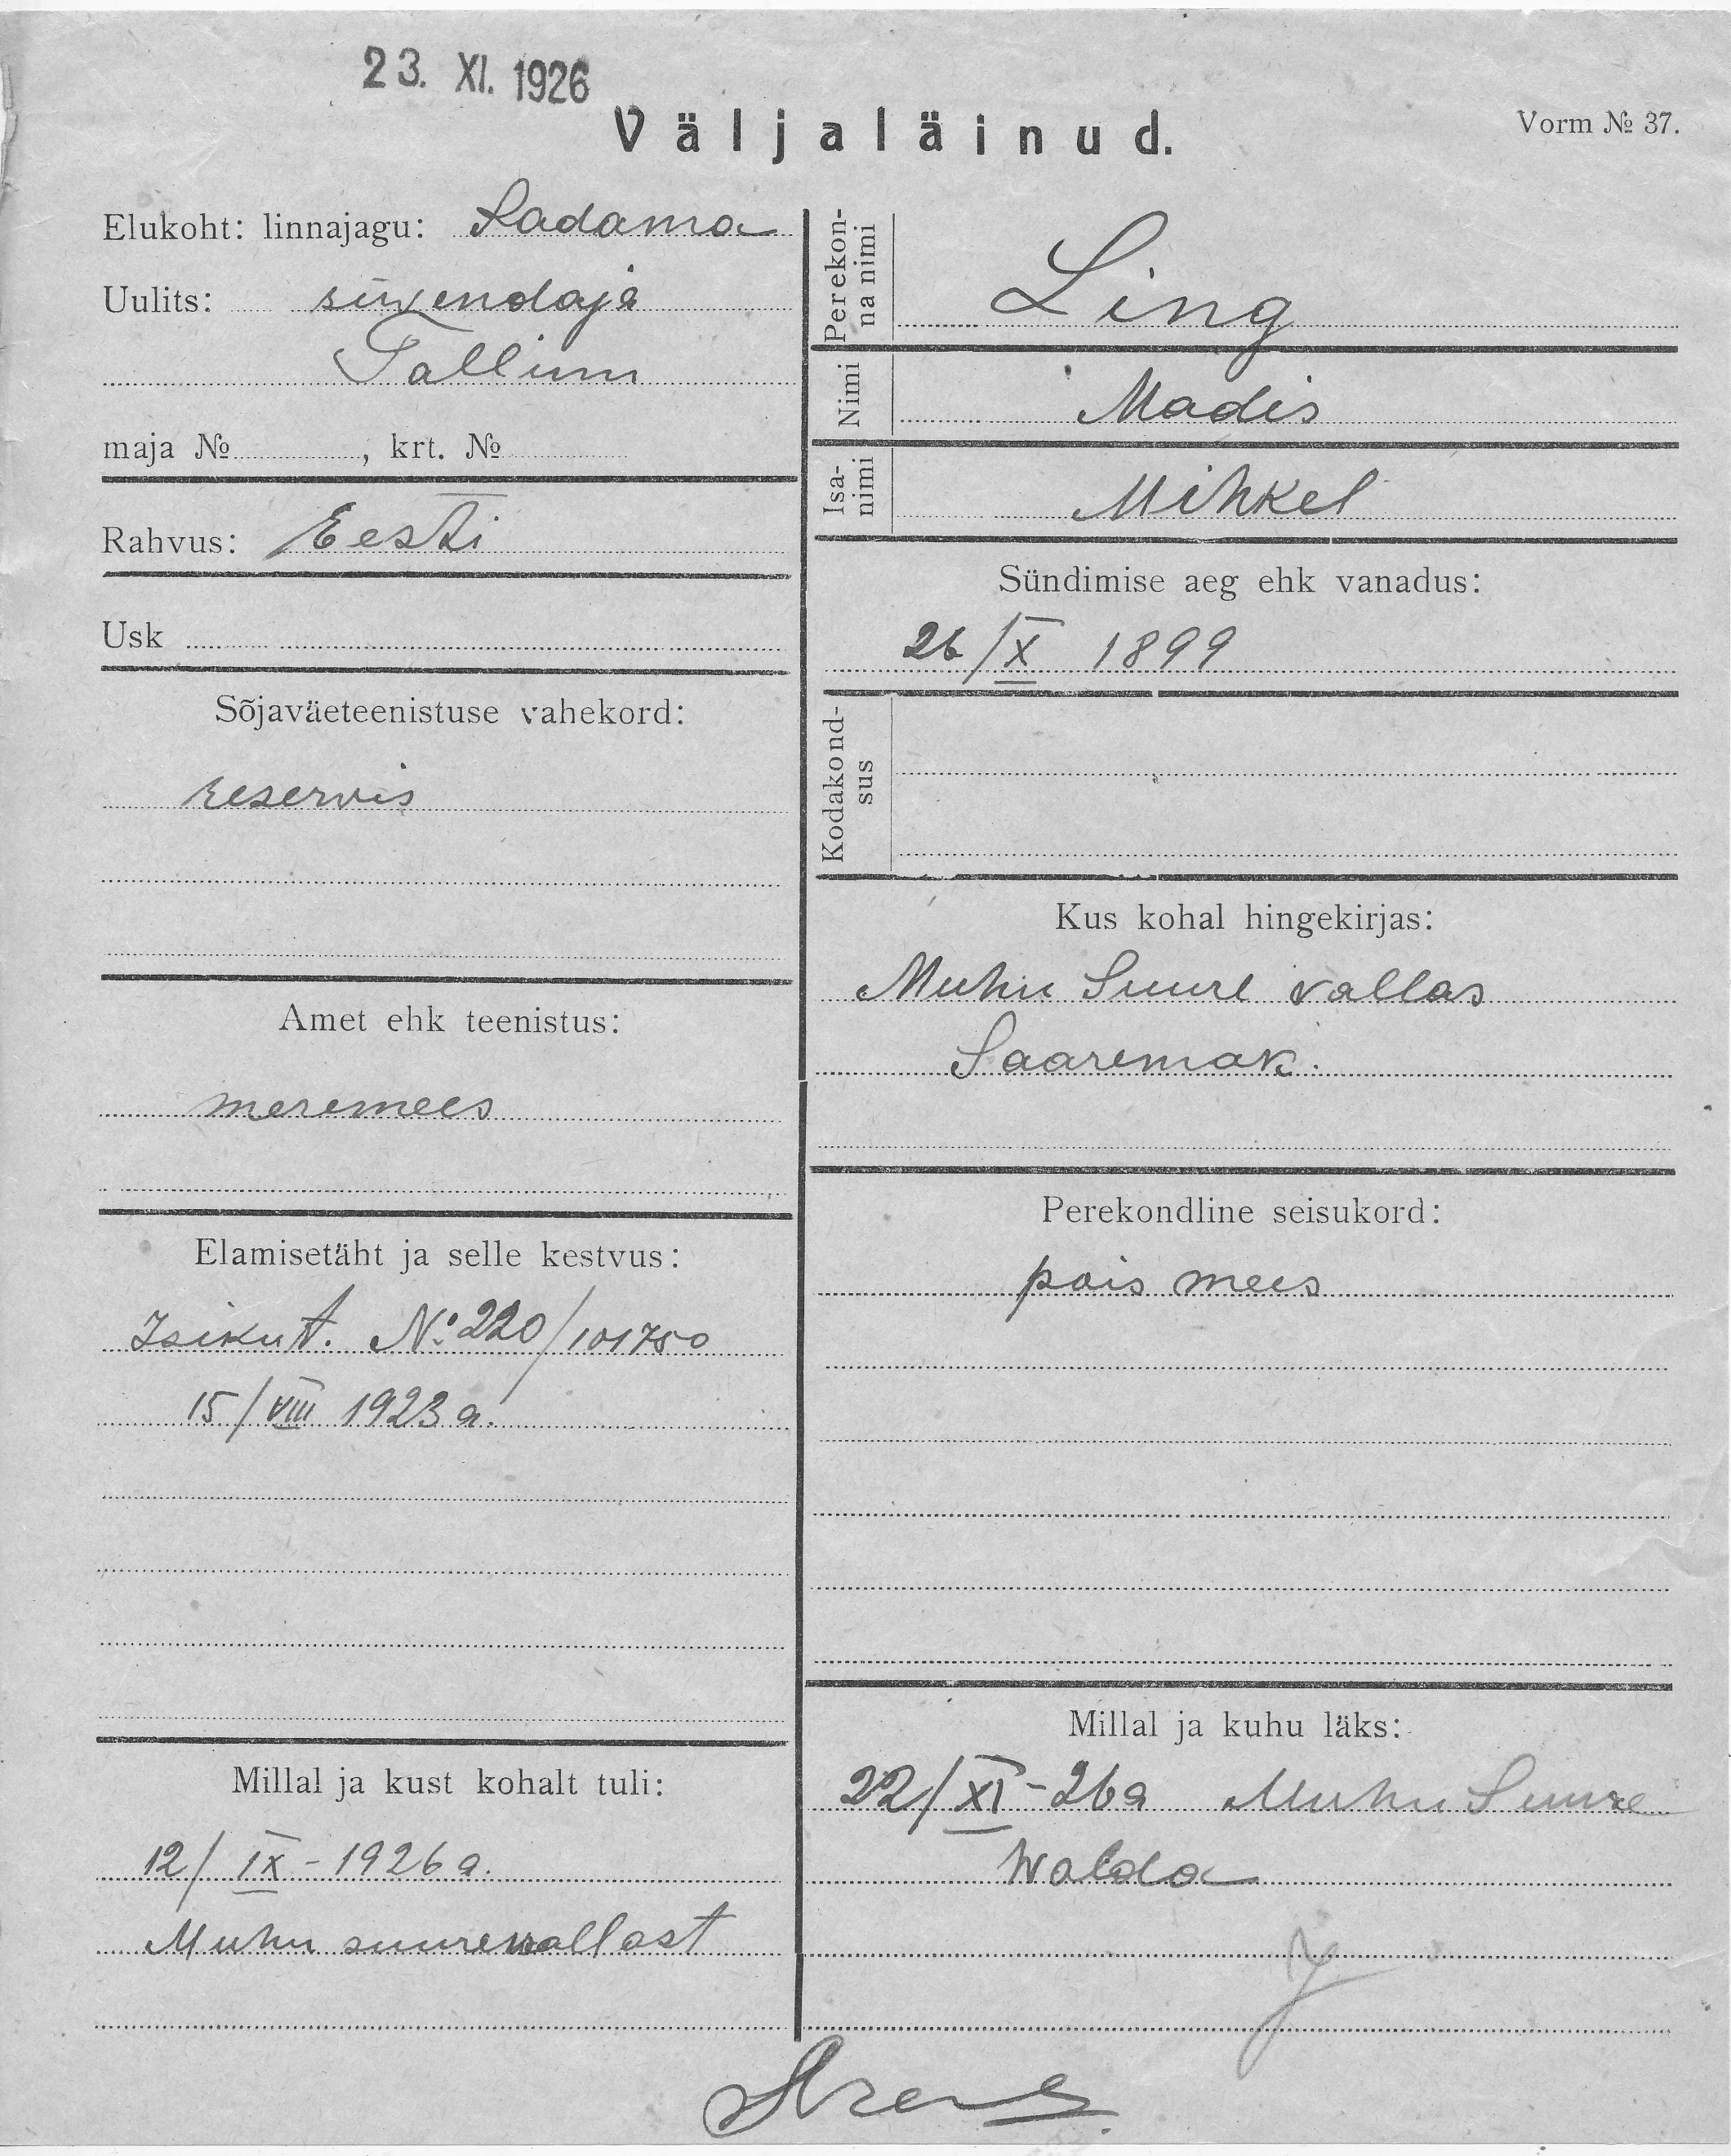 23. XI. 1926
Väljaläinud.
Vorm № 37.
Elukoht: linnajagu: Sadama
Uulits: süvendaja
Tallinn
maja № , krt. №
Rahvus: Eesti
Usk
Sõjaväeteenistuse vahekord:
reservis
Amet ehk teenistus:
meremees
Elamisetäht ja selle kestvus:
Isikut. No 220/101750
15/VIII 1923 a.
Millal ja kust kohalt tuli:
12/IX-1926 a.
Muhu suurewallast
Perekonna nimi
Ling
Nimi
Madis
Isanimi
Mihkel
Sündimise aeg ehk vanadus:
26/X 1899
Kodakondsus
Kus kohal hingekirjas:
Muhu Suure vallas
Saaremak.
Perekondline seisukord:
pois mees
Millal ja kuhu läks:
22/XI-26a Muhu Suure
walda